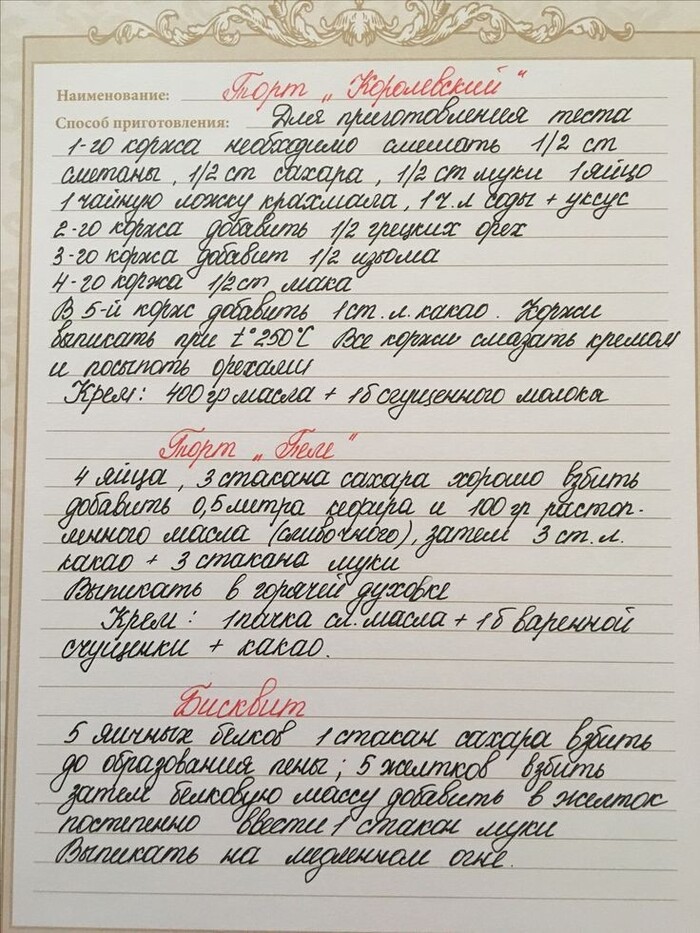 Наименование: Торт „Королевский“
Способ приготовления: Для приготовления теста
1-го коржа необходимо смешать 1/2 ст
сметаны, 1/2 ст сахара, 1/2 ст муки 1 яйцо
1 чайную ложку крахмала, 1 ч.л соды + уксус
2-го коржа добавить 1/2 грецких орех
3-го коржа добавит 1/2 изюма
4-го коржа 1/2 ст мака
В 5-й корж добавить 1 ст. л. какао. Коржи
выпикать при t° 250°С Все коржи смазать кремом
и посыпать орехами
Крем: 400 гр масла + 1б сгущенного молока
Торт „Пеле“
4 яйца, 3 стакана сахара хорошо взбить
добавить 0,5 литра кефира и 100 гр растоп-
ленного масла (сливочного), затем 3 ст. л.
какао + 3 стакана муки
Выпикать в горячей духовке
Крем: 1 пачка сл. масла + 1б варенной
сгущенки + какао.
Бисквит
5 яичных белков 1 стакан сахара взбить
до образования пены; 5 желтков взбить
затем белковую массу добавить в желток
постепенно ввести 1 стакан муки
Выпикать на медленном огне.